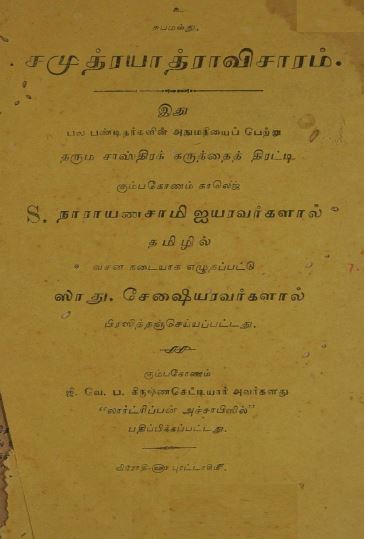 உ
சுபமஸ்து.
சமுத்ரயாத்ராவிசாரம்.
இது
பல பண்டிதர்களின் அநுமதியைப் பெற்று
தரும சாஸ்திரக் கருத்தைத் திரட்டி
கும்பகோணம் காலெஜ்
S. நாராயணசாமி ஐயரவர்களால்
தமிழில்
வசன நடையாக எழுதப்பட்டு
ஸாது. சேஷையரவர்களால்
பிரஸித்தஞ்செய்யப்பட்டது.
கும்பகோணம்
ஜி. வே. ப. கிருஷ்ணசெட்டியார் அவர்களது
"லார்ட்ரிப்பன் அச்சாபிஸில்"
பதிப்பிக்கப்பட்டது.
விரோதி௵ புரட்டாசி௴.